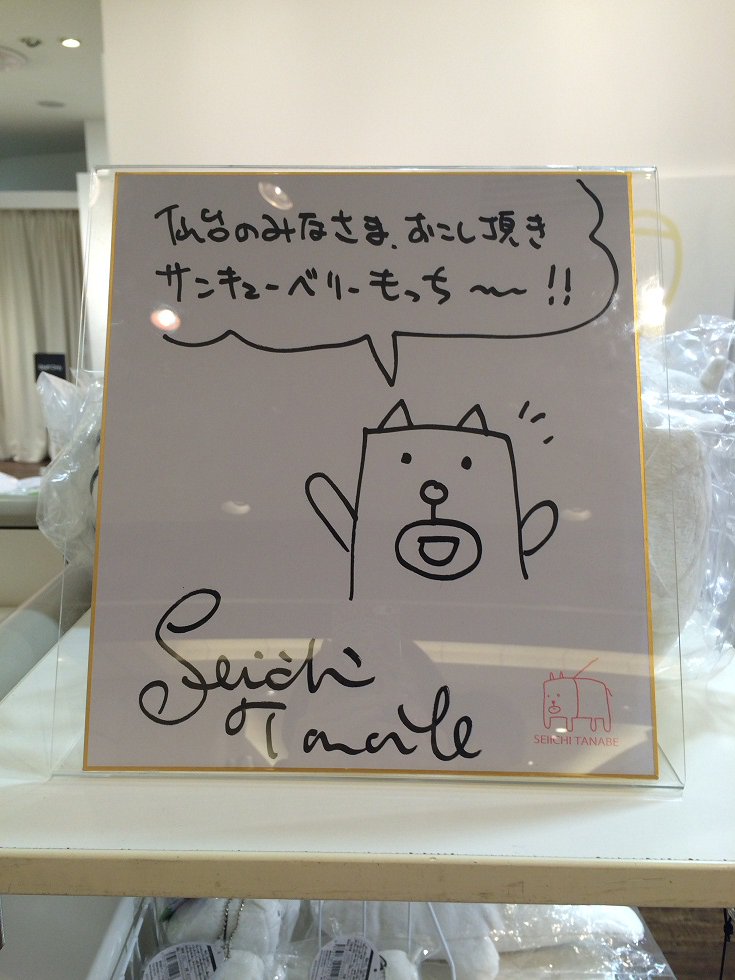 仙台のみなさま、おこし頂き
サンキューベリーもっち〜〜!!
Seiichi
Tanabe
SEIICHI TANABE